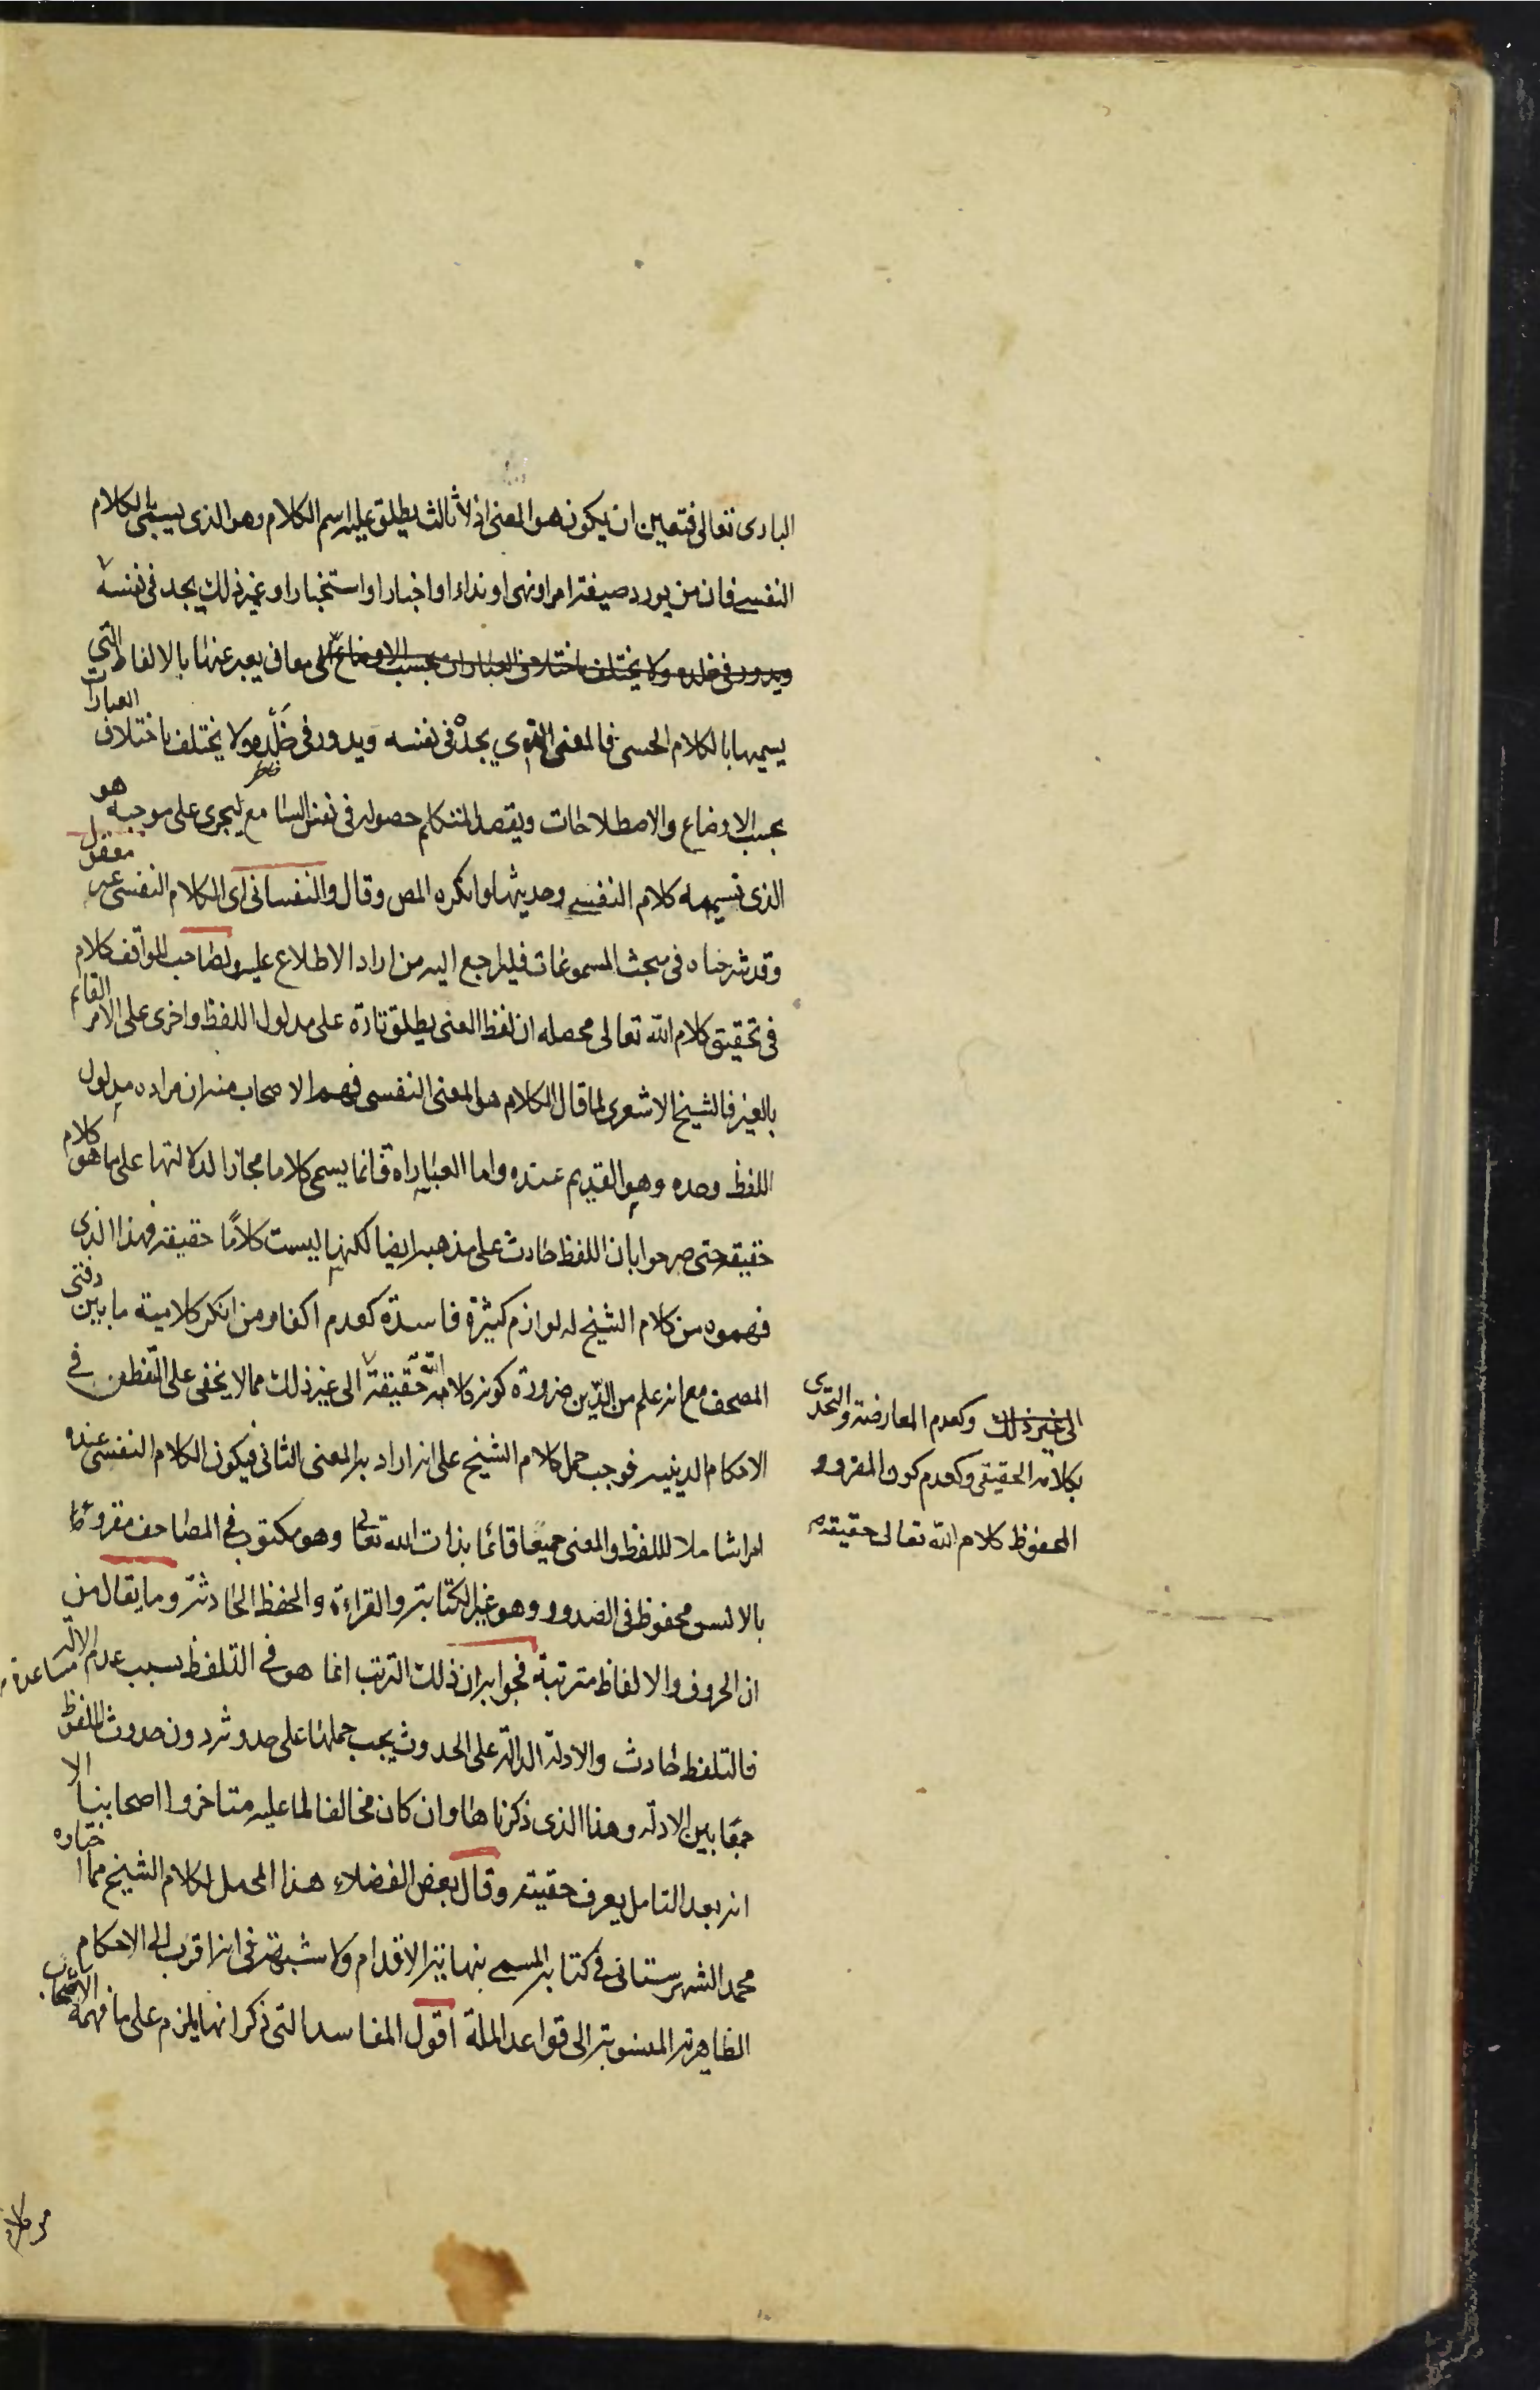 البارى تعالى فتعين ان يكون هو المعنى اذ لا ثالث يطلق عليه اسم الكلام وهو الذى يسمى بالكلام
النفسى فان من يورد صيغة امر او نهى او نداء او اخبار او استخبار او غير ذلك يجد فى نفسه
ويدور فى خلده ولا يختلف باختلاف العبارات بحسب الاوضاع الى معان يعبر عنها بالالفاظ التى
يسميها بالكلام الحسى فالمعنى الذى يجده فى نفسه ويدور فى خلده ولا يختلف باختلاف العبارات
بحسب الاوضاع والاصطلاحات ويقصد المتكلم حصوله فى نفس السامع ليجرى على موجبه هو
الذى نسميه كلام النفس وحديثها وانكره المص وقال والنفسانى اى الكلام النفسى غير معقول
وقد شرحناه فى مبحث المسموعات فليراجع اليه من اراد الاطلاع عليه ولصاحب المواقف كلام
فى تحقيق كلام الله تعالى محصله ان لفظ المعنى يطلق تارة على مدلول اللفظ واخرى على الامر القائم
بالغير فالشيخ الاشعرى لما قال الكلام هو المعنى النفسى فهم الاصحاب منه ان مراده مدلول
اللفظ وحده وهو القديم عنده واما العبارات فانما يسمى كلاما مجازا لدلالتها على ما هو كلام
حقيقة حتى صرحوا بان اللفظ حادث على مذهبه ايضا لكنها ليست كلامًا حقيقة فهذا الذى
فهموه من كلام الشيخ له لوازم كثيرة فاسدة كعدم اكفار من انكر كلامية ما بين دفتى
المصحف مع انه علم من الدّين ضرورة كونه كلام الله حقيقة الى غير ذلك مما لا يخفى على المتفطن فى
الاحكام الدينيه فوجب حمل كلام الشيخ على انه اراد به المعنى الثانى فيكون الكلام النفسى عنده
امرا شاملا لللفظ والمعنى جميعًا قائما بذات الله تعالى وهو مكتوب فى المصاحف مقروءًا
بالالسن محفوظ فى الصدور وهو غير الكتابة والقراءة والحفظ الحادثة وما يقال من
ان الحروف والالفاظ مترتبة فجوابه ان ذلك الترتب انما هو فى التلفظ بسبب عدم مساعدة الالة
فالتلفظ حادث والادلة الدالة على الحدوث يجب حملها على حدوثه دون حدوث الملفوظ
جمعًا بين الادلة وهذا الذى ذكرناها وان كان مخالفا لما عليه متاخروا اصحابنا الا
انه بعد التامل يعرف حقيته وقال بعض الفضلاء هذا المحمل لكلام الشيخ مما اختاره
محمد الشهرستانى فى كتابه المسمى بنهاية الاقدام ولا شبهة فى انه اقرب الى الاحكام
الظاهرية المنسوبة الى قواعد الملة اقول المفاسد التى ذكر انها يلزم على ما فهمه الاصحاب
الى غير ذلك وكعدم المعارضة والتحدى
بكلامه الحقيقى وكعدم كون المقروء
المحفوظ كلام الله تعالى حقيقة